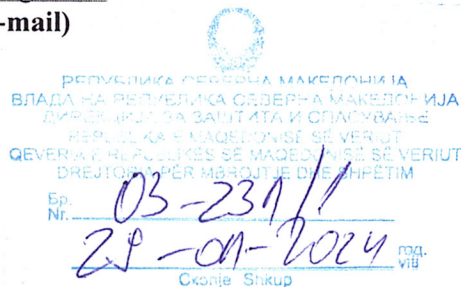 -mail)
РЕПУБЛИКА СЕВЕРНА МАКЕДОНИЈА
ВЛАДА НА РЕПУБЛИКА СЕВЕРНА МАКЕДОНИЈА
ДИРЕКЦИЈА ЗА ЗАШТИТА И СПАСУВАЊЕ
REPUBLIKA E MAQEDONISË SË VERIUT
QEVERIA E REPUBLIKËS SË MAQEDONISË SË VERIUT
DREJTORIA PËR MBROJTJE DHE SHPËTIM
Бр.
Nr. 03-231/1
29-01-2024 год. viti
Скопје Shkup